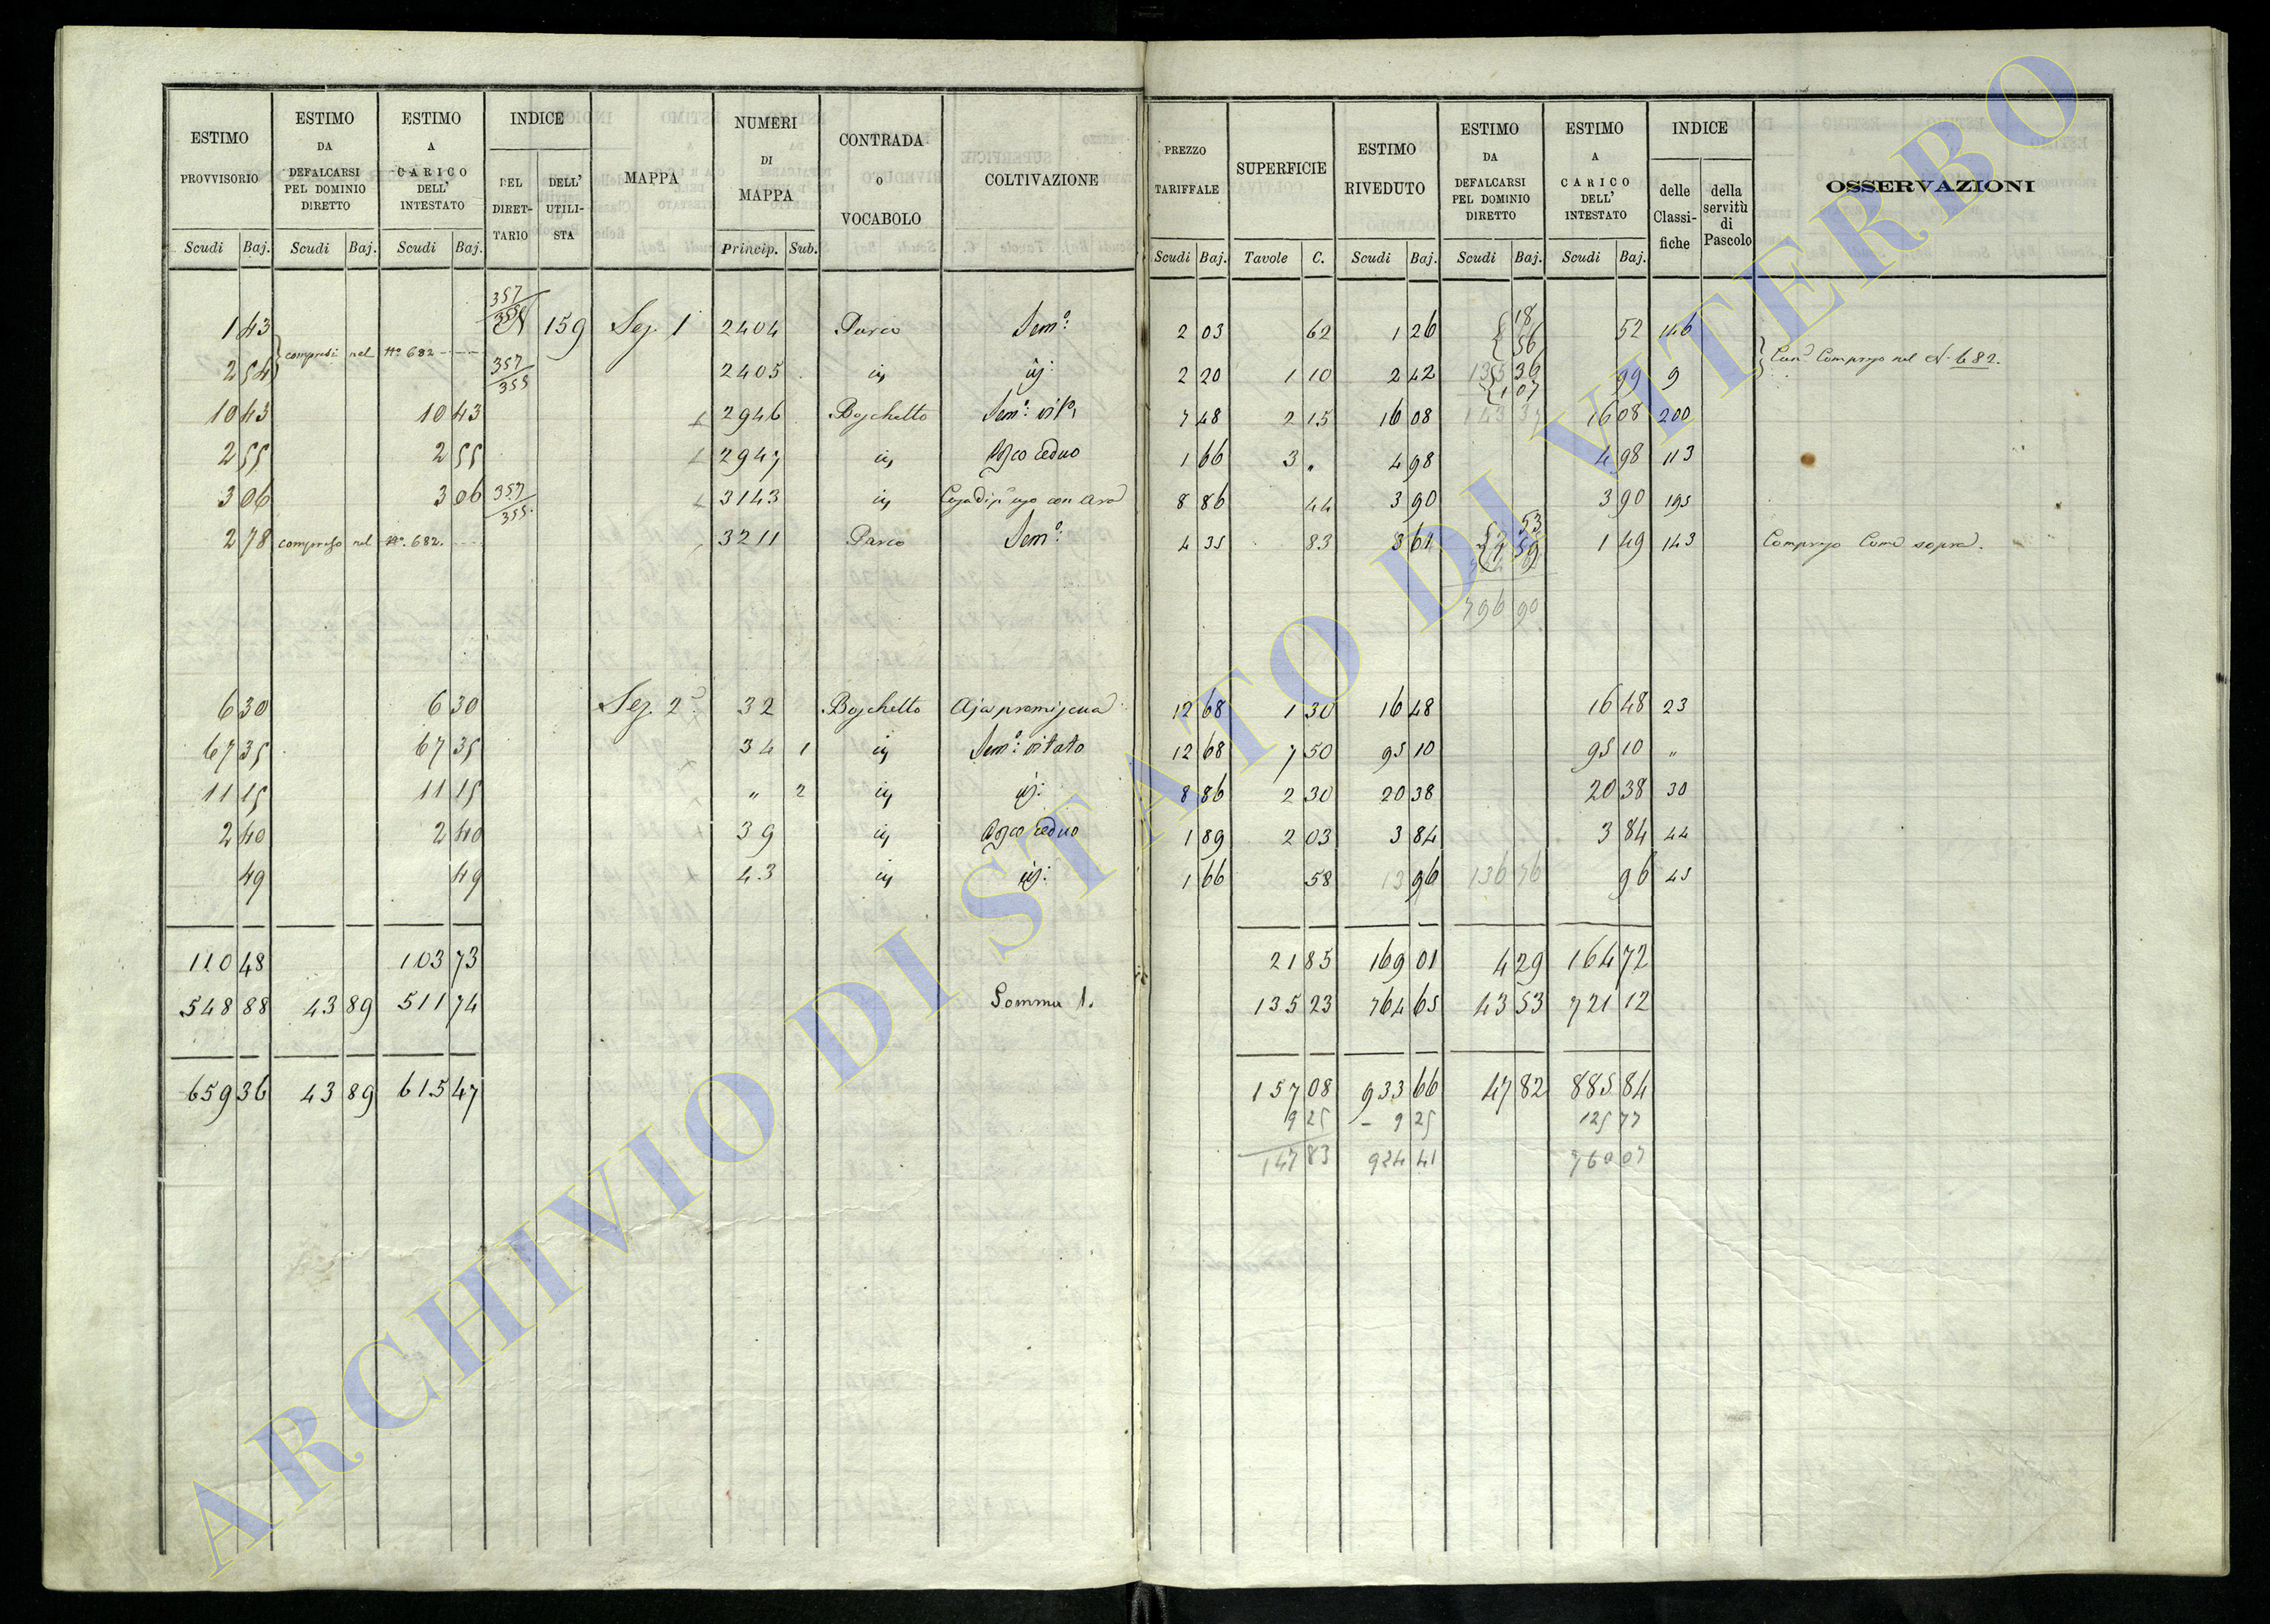 ESTIMO PROVVISORIO | ESTIMO DA DEFALCARSI PEL DOMINIO DIRETTO | ESTIMO A CARICO DELL' INTESTATO | INDICE | MAPPA | NUMERI DI MAPPA | CONTRADA O VOCABOLO | COLTIVAZIONE | PREZZO TARIFFALE | SUPERFICIE | ESTIMO RIVEDUTO | ESTIMO DA DEFALCARSI PEL DOMINIO DIRETTO | ESTIMO A CARICO DELL' INTESTATO | INDICE | OSSERVAZIONI
DEL DIRETTARIO | DELL' UTILISTA | delle Classifiche | della servitù di Pascolo
Scudi Baj. | Scudi Baj. | Scudi Baj. | Princip. Sub. | Scudi Baj. | Tavole C. | Scudi Baj. | Scudi Baj. | Scudi Baj.
1 43 | 357 | 159 | Sez. 1ª | 2404 | Parco | Sem.º | 2 03 | 62 | 1 26 | 18 56 | 52 | 146
compresi nel Nº 682 | Compreso nel N. 682.
2 54 | 357/355 | 2405 | id | id: | 2 20 | 1 10 | 2 42 | 36 1 07 | 99 | 9
10 43 | 10 43 | 2946 | Boschetto | Sem.º vitº | 7 48 | 2 15 | 16 08 | 16 08 | 200
2 55 | 2 55 | 2947 | id | Bosco ceduo | 1 66 | 3 " | 4 98 | 4 98 | 113
3 06 | 3 06 | 357/355 | 3143 | id | 8 86 | 44 | 3 90 | 3 90 | 195
2 78 | compreso nel Nº. 682. | 3211 | Parco | Sem.º | 4 35 | 83 | 3 61 | 53 1 59 | 1 49 | 143 | Compreso Come sopra.
796 90
6 30 | 6 30 | Sez. 2ª | 32 | Boschetto | Aja promiscua | 12 68 | 1 30 | 16 48 | 16 48 | 23
67 35 | 67 35 | 34 | 1 | id | Sem.º vitato | 12 68 | 7 50 | 95 10 | 95 10 | "
11 15 | 11 15 | " | 2 | id | id: | 8 86 | 2 30 | 20 38 | 20 38 | 30
2 40 | 2 40 | 39 | id | Bosco ceduo | 1 89 | 2 03 | 3 84 | 3 84 | 44
49 | 49 | 43 | id | id: | 1 66 | 58 | 96 | 136 76 | 96 | 45
110 48 | 103 73 | 21 85 | 169 01 | 4 29 | 164 72
548 88 | 43 89 | 511 74 | Somma 1. | 135 23 | 764 65 | 43 53 | 721 12
659 36 | 43 89 | 615 47 | 157 08 | 933 66 | 47 82 | 885 84
9 25 | - 9 25 | 125 77
147 83 | 924 41 | 760 07
ARCHIVIO DI STATO DI VITERBO